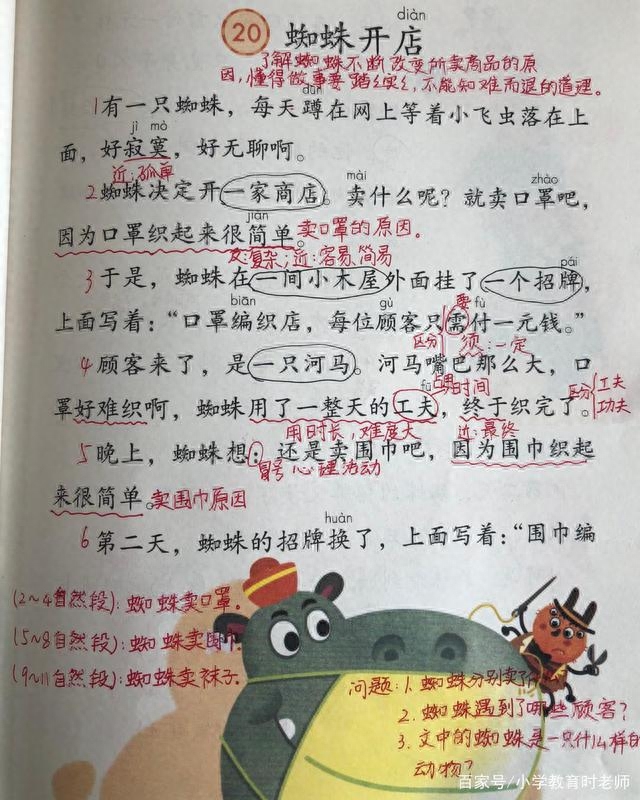 diàn
20 蜘蛛开店
了解蜘蛛不断改变所卖商品的原
因,懂得做事要踏踏实实,不能知难而退的道理。
dūn
1有一只蜘蛛，每天蹲在网上等着小飞虫落在上
jì mò
面，好寂寞，好无聊啊。
近:孤单
mài zhào
2蜘蛛决定开一家商店。卖什么呢？就卖口罩吧，
jiǎn
因为口罩织起来很简单。卖口罩的原因。
反:复杂;近:容易 简易
pái
3于是，蜘蛛在一间小木屋外面挂了一个招牌，
biān gù 要 fù
上面写着：“口罩编织店，每位顾客只需付一元钱。”
区分 须:一定
4顾客来了，是一只河马。河马嘴巴那么大，口
fū 占用时间
罩好难织啊，蜘蛛用了一整天的工夫，终于织完了。
区分 工夫 功夫
用时长,难度大 近:最终
5晚上，蜘蛛想：还是卖围巾吧，因为围巾织起
冒号 心理活动
来很简单。卖围巾原因
huàn
6第二天，蜘蛛的招牌换了，上面写着：“围巾编
(2~4自然段):蜘蛛卖口罩。
(5~8自然段):蜘蛛卖围巾。
(9~11自然段):蜘蛛卖袜子.
问题:1.蜘蛛分别卖了什
2.蜘蛛遇到了哪些顾客?
3.文中的蜘蛛是一只什么样的
动物?
百家号/小学教育时老师